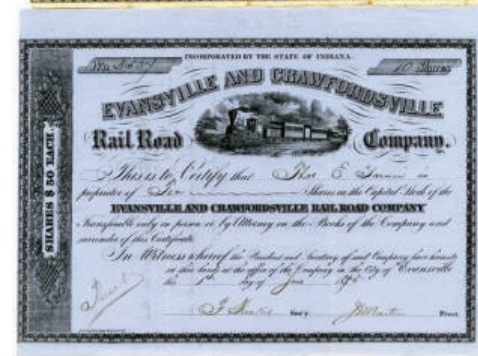 INCORPORATED BY THE STATE OF INDIANA.
10 Shares
EVANSVILLE AND CRAWFORDSVILLE
Rail Road Company.
SHARES $ 50 EACH.
This is to Certify that E is
proprietor of Ten Shares in the Capital Stock of the
EVANSVILLE AND CRAWFORDSVILLE RAIL ROAD COMPANY
Transferable only in person or by Attorney on the Books of the Company and
surrender of this Certificate.
In Witness whereof the President and Secretary of said Company have hereunto
set their hands at the office of the Company in the City of Evansville
the day of June
Sec'y. Martin Prest.